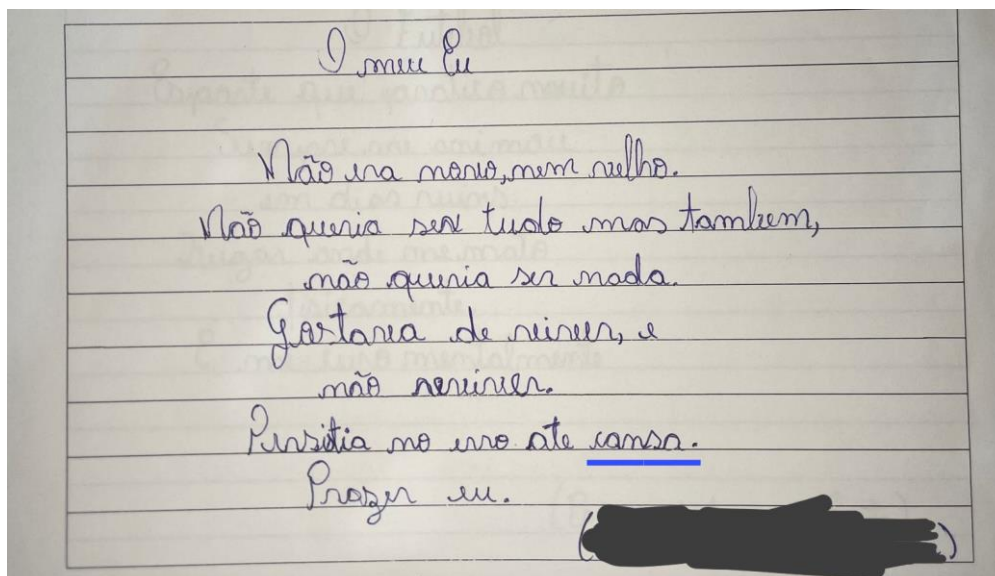 O meu Eu
Não era novo, nem velho.
Não queria ser tudo mas tambem,
não queria ser nada.
Gostaria de viver, e
não reviver.
Persitia no erro ate cansa.
Prazer eu.